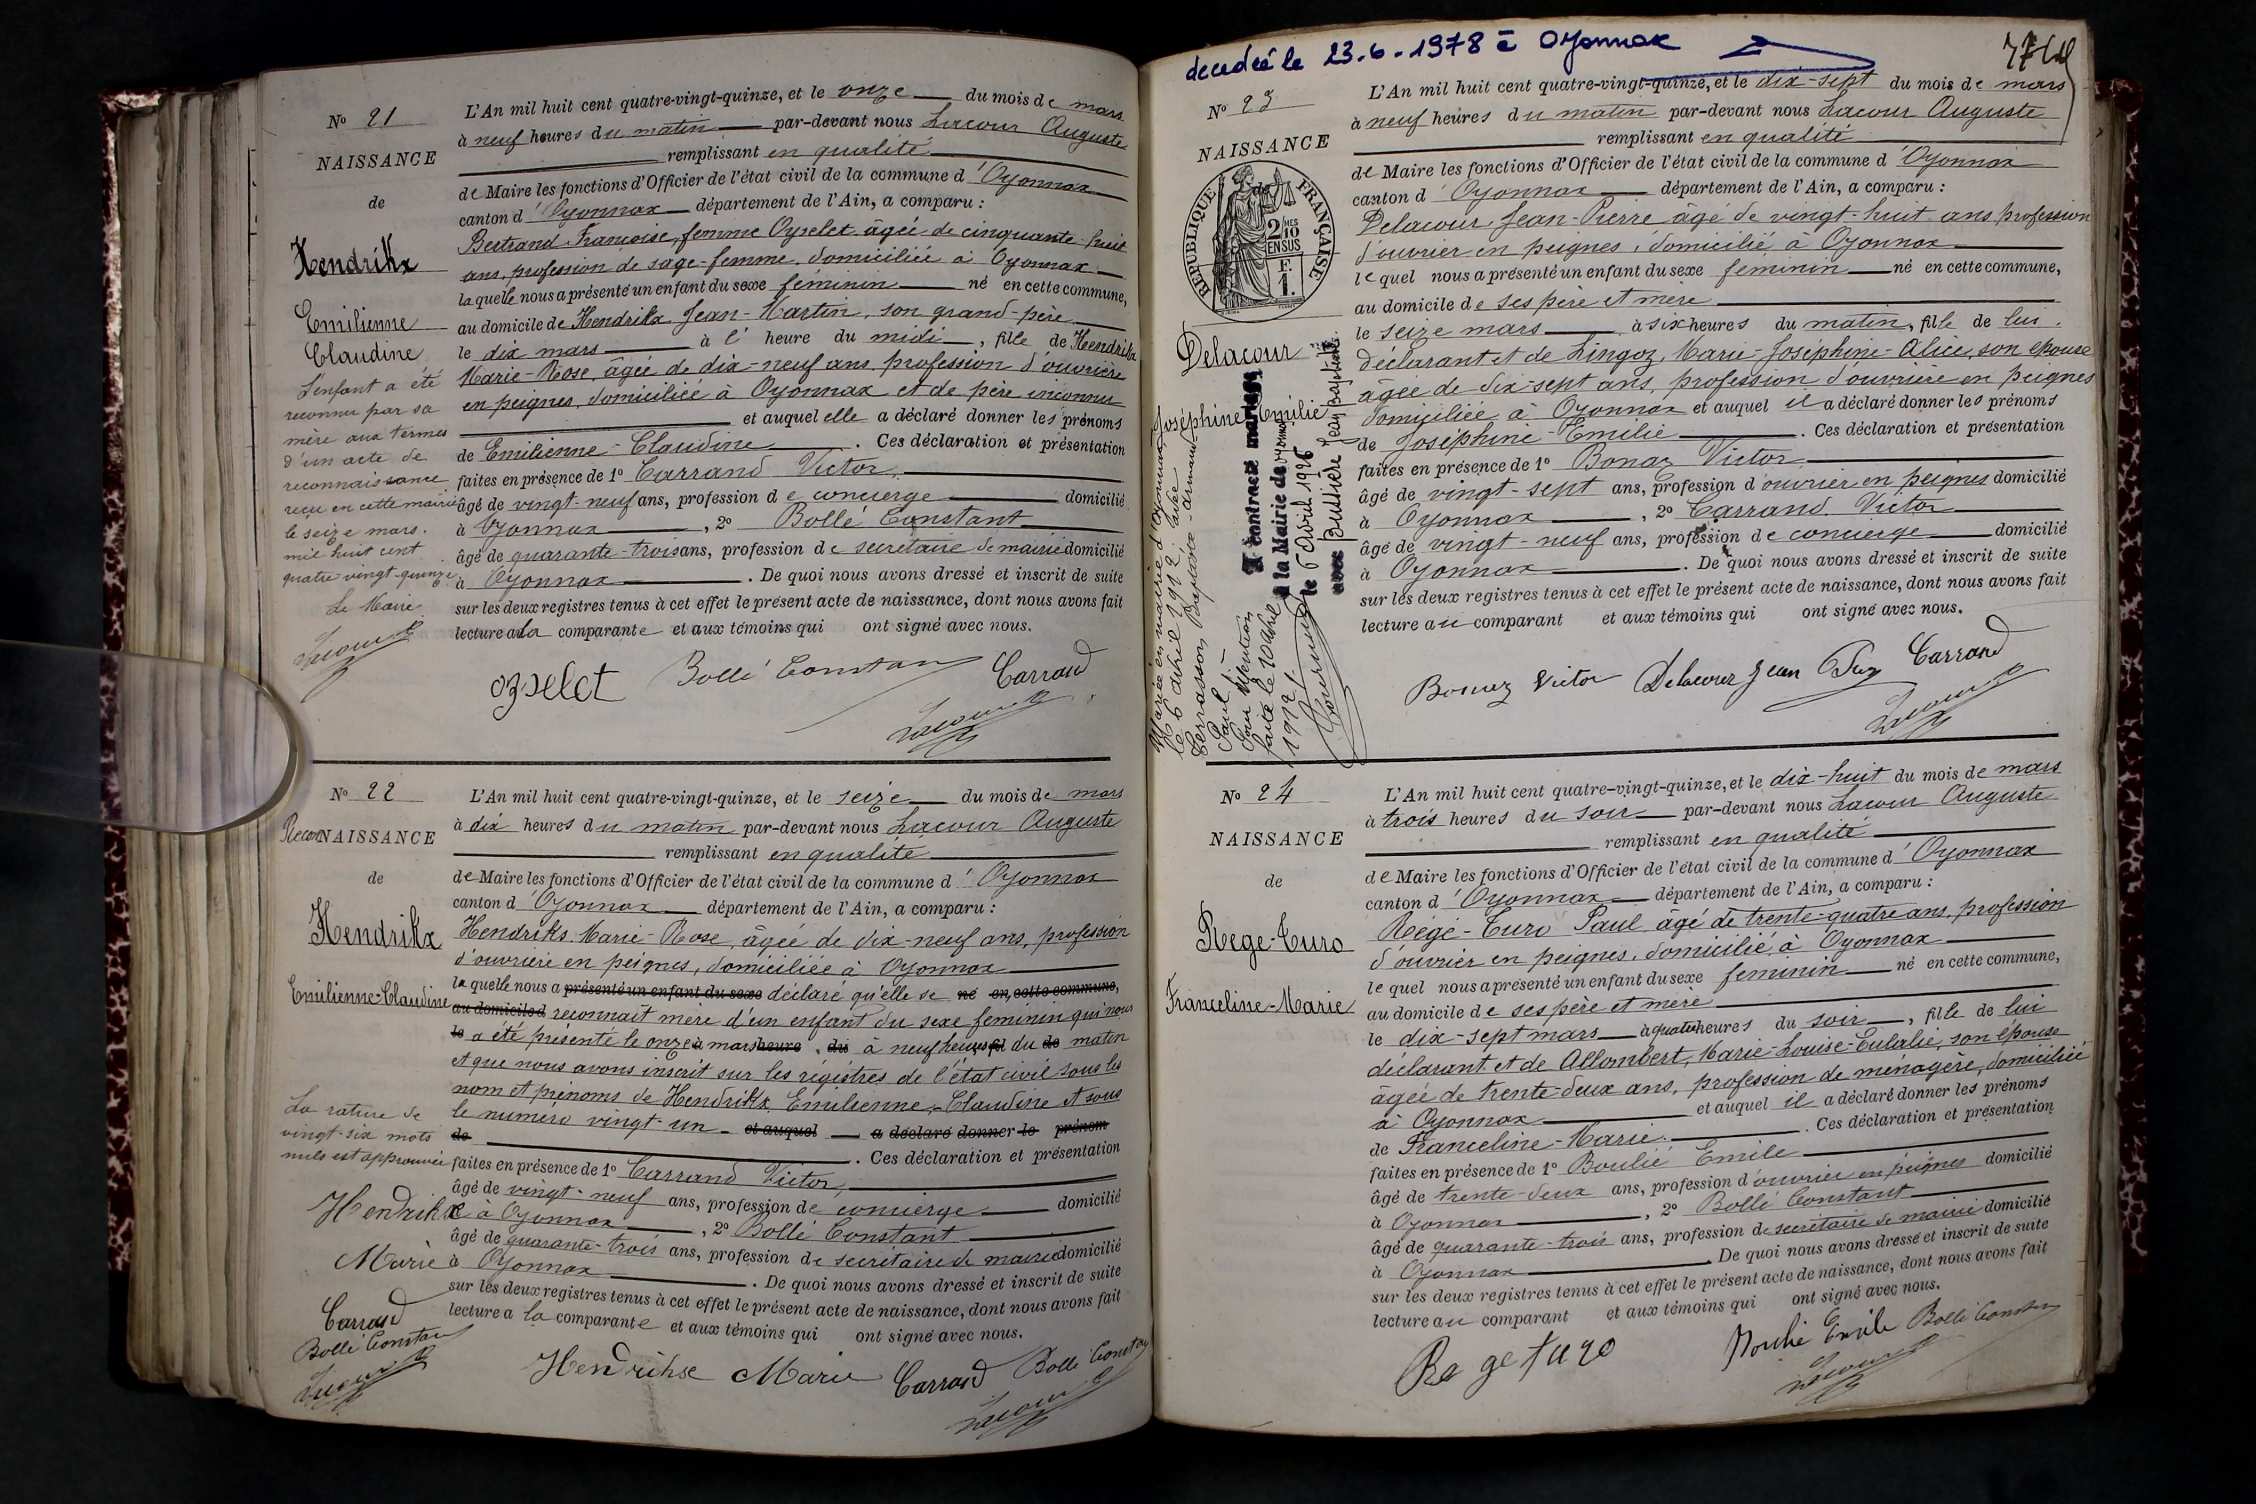 No 21
NAISSANCE
de
Hendrikx
Emilienne
Claudine
L'enfant a été
reconnu par sa
mère aux termes
d'un acte de
reconnaissance
reçu en cette mairie
le seize mars
mil huit cent
quatre vingt-quinze
Le Maire
Lacour A
L'An mil huit cent quatre-vingt-quinze, et le onze du mois de mars
à neuf heures du matin par-devant nous Lacour Auguste
remplissant en qualité
de Maire les fonctions d'Officier de l'état civil de la commune d'Oyonnax
canton d'Oyonnax département de l'Ain, a comparu :
Bertrand Françoise, femme Oyselet âgée de cinquante-huit
ans, profession de sage-femme, domiciliée à Oyonnax
laquelle nous a présenté un enfant du sexe féminin né en cette commune,
au domicile de Hendrikx Jean-Martin, son grand-père
le dix mars à l' heure du midi, fille de Hendrikx
Marie-Rose, âgée de dix-neuf ans, profession d'ouvrière
en peignes, domiciliée à Oyonnax et de père inconnu
et auquel elle a déclaré donner les prénoms
de Emilienne-Claudine. Ces déclaration et présentation
faites en présence de 1° Carrand Victor,
âgé de vingt-neuf ans, profession de concierge domicilié
à Oyonnax, 2° Bollé Constant
âgé de quarante-trois ans, profession de secrétaire de mairie domicilié
à Oyonnax. De quoi nous avons dressé et inscrit de suite
sur les deux registres tenus à cet effet le présent acte de naissance, dont nous avons fait
lecture à la comparante et aux témoins qui ont signé avec nous.
ozselet Bollé Constan Carrand
Lacour A
No 22
Recon NAISSANCE
de
Hendrikx
Emilienne-Claudine
La rature de
vingt-six mots
nuls est approuvée
Hendrikse
Marie
Carrand
Bollé Constan
Lacour A
L'An mil huit cent quatre-vingt-quinze, et le seize du mois de mars
à dix heures du matin par-devant nous Lacour Auguste
remplissant en qualité
de Maire les fonctions d'Officier de l'état civil de la commune d'Oyonnax
canton d'Oyonnax département de l'Ain, a comparu :
Hendriks Marie-Rose, âgée de dix-neuf ans, profession
d'ouvrière en peignes, domiciliée à Oyonnax
laquelle nous a présenté un enfant du sexe déclaré qu'elle se né en cette commune,
au domicile d reconnaît mère d'un enfant du sexe féminin qui nous
le a été présenté le onze à mars heure du à neuf heures fil du de matin
et que nous avons inscrit sur les régistres de l'état civil sous les
nom et prénoms de Hendrikx Emilienne-Claudine et sous
le numéro vingt-un et auquel a déclaré donner le prénom
de . Ces déclaration et présentation
faites en présence de 1° Carrand Victor,
âgé de vingt-neuf ans, profession de concierge domicilié
à Oyonnax, 2° Bollé Constant
âgé de quarante-trois ans, profession de secrétaire de mairie domicilié
à Oyonnax. De quoi nous avons dressé et inscrit de suite
sur les deux registres tenus à cet effet le présent acte de naissance, dont nous avons fait
lecture a la comparante et aux témoins qui ont signé avec nous.
Hendrikse Marie Carrand Bollé Constan
Lacour A
decedeé le 23-6-1978 à Oyonnax
No 23
NAISSANCE
de
RÉPUBLIQUE FRANÇAISE
2/10MES
EN SUS
F.
1.
Delacour
Joséphine-Emilie
Mariée en mairie d'Oyonnax
le 6 avril 1912 avec
Perrasson Baptiste Armand
Paul
Pour Mention
faite le 10 avril
1912
A contracté mariage
à la Mairie de Oyonnax
le 6 Avril 1926
avec Buthière Jean Baptiste
L'An mil huit cent quatre-vingt-quinze, et le dix-sept du mois de mars
à neuf heures du matin par-devant nous Lacour Auguste
remplissant en qualité
de Maire les fonctions d'Officier de l'état civil de la commune d'Oyonnax
canton d'Oyonnax département de l'Ain, a comparu :
Delacour Jean-Pierre âgé de vingt-huit ans, profession
d'ouvrier en peignes, domicilié à Oyonnax
lequel nous a présenté un enfant du sexe féminin né en cette commune,
au domicile de ses père et mère
le seize mars à six heures du matin, fille de lui
déclarant et de Lingoz, Marie-Joséphine-Alice, son épouse
âgée de dix-sept ans, profession d'ouvrière en peignes
domiciliée à Oyonnax et auquel il a déclaré donner les prénoms
de Joséphine-Emilie. Ces déclaration et présentation
faites en présence de 1° Bonaz Victor
âgé de vingt-sept ans, profession d'ouvrier en peignes domicilié
à Oyonnax, 2° Carrand Victor
âgé de vingt-neuf ans, profession de concierge domicilié
à Oyonnax. De quoi nous avons dressé et inscrit de suite
sur les deux registres tenus à cet effet le présent acte de naissance, dont nous avons fait
lecture au comparant et aux témoins qui ont signé avec nous.
Bonaz Victor Delacour Jean Carrand
Lacour A
No 24
NAISSANCE
de
Rege-Turo
Franceline-Marie
L'An mil huit cent quatre-vingt-quinze, et le dix-huit du mois de mars
à trois heures du soir par-devant nous Lacour Auguste
remplissant en qualité
de Maire les fonctions d'Officier de l'état civil de la commune d'Oyonnax
canton d'Oyonnax département de l'Ain, a comparu :
Régé-Turo Paul âgé de trente-quatre ans, profession
d'ouvrier en peignes, domicilié à Oyonnax
lequel nous a présenté un enfant du sexe féminin né en cette commune,
au domicile de ses père et mère
le dix-sept mars à quatre heures du soir, fille de lui
déclarant et de Allombert, Marie-Louise-Eulalie, son épouse
âgée de trente-deux ans, profession de ménagère, domiciliée
à Oyonnax et auquel il a déclaré donner les prénoms
de Franceline-Marie. Ces déclaration et présentation
faites en présence de 1° Boulié Emile
âgé de trente-deux ans, profession d'ouvrier en peignes domicilié
à Oyonnax, 2° Bollé Constant
âgé de quarante-trois ans, profession de secrétaire de mairie domicilié
à Oyonnax. De quoi nous avons dressé et inscrit de suite
sur les deux registres tenus à cet effet le présent acte de naissance, dont nous avons fait
lecture au comparant et aux témoins qui ont signé avec nous.
Rege turo Boulié Emile Bollé Constan
Lacour A